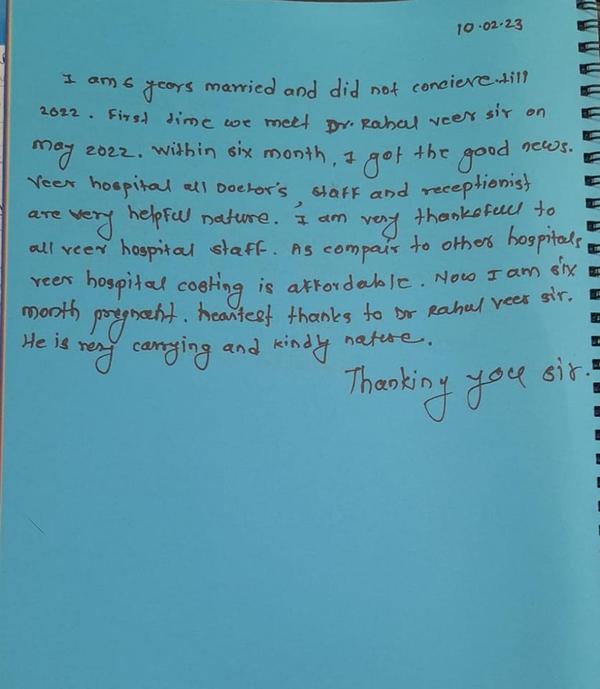 10.02.23
I am 6 years married and did not concieve till
2022. First time we meet Dr. Rahul veer sir on
may 2022. within six month, I got the good news.
Veer hospital all Doctor's, staff and receptionist
are very helpful nature. I am very thankefull to
all veer hospital staff. As compair to other hospitals
veer hospital costing is affordable. Now I am six
month pregnant. heartest thanks to Dr Rahul veer sir.
He is very carrying and kindly nature.
Thanking you sir.